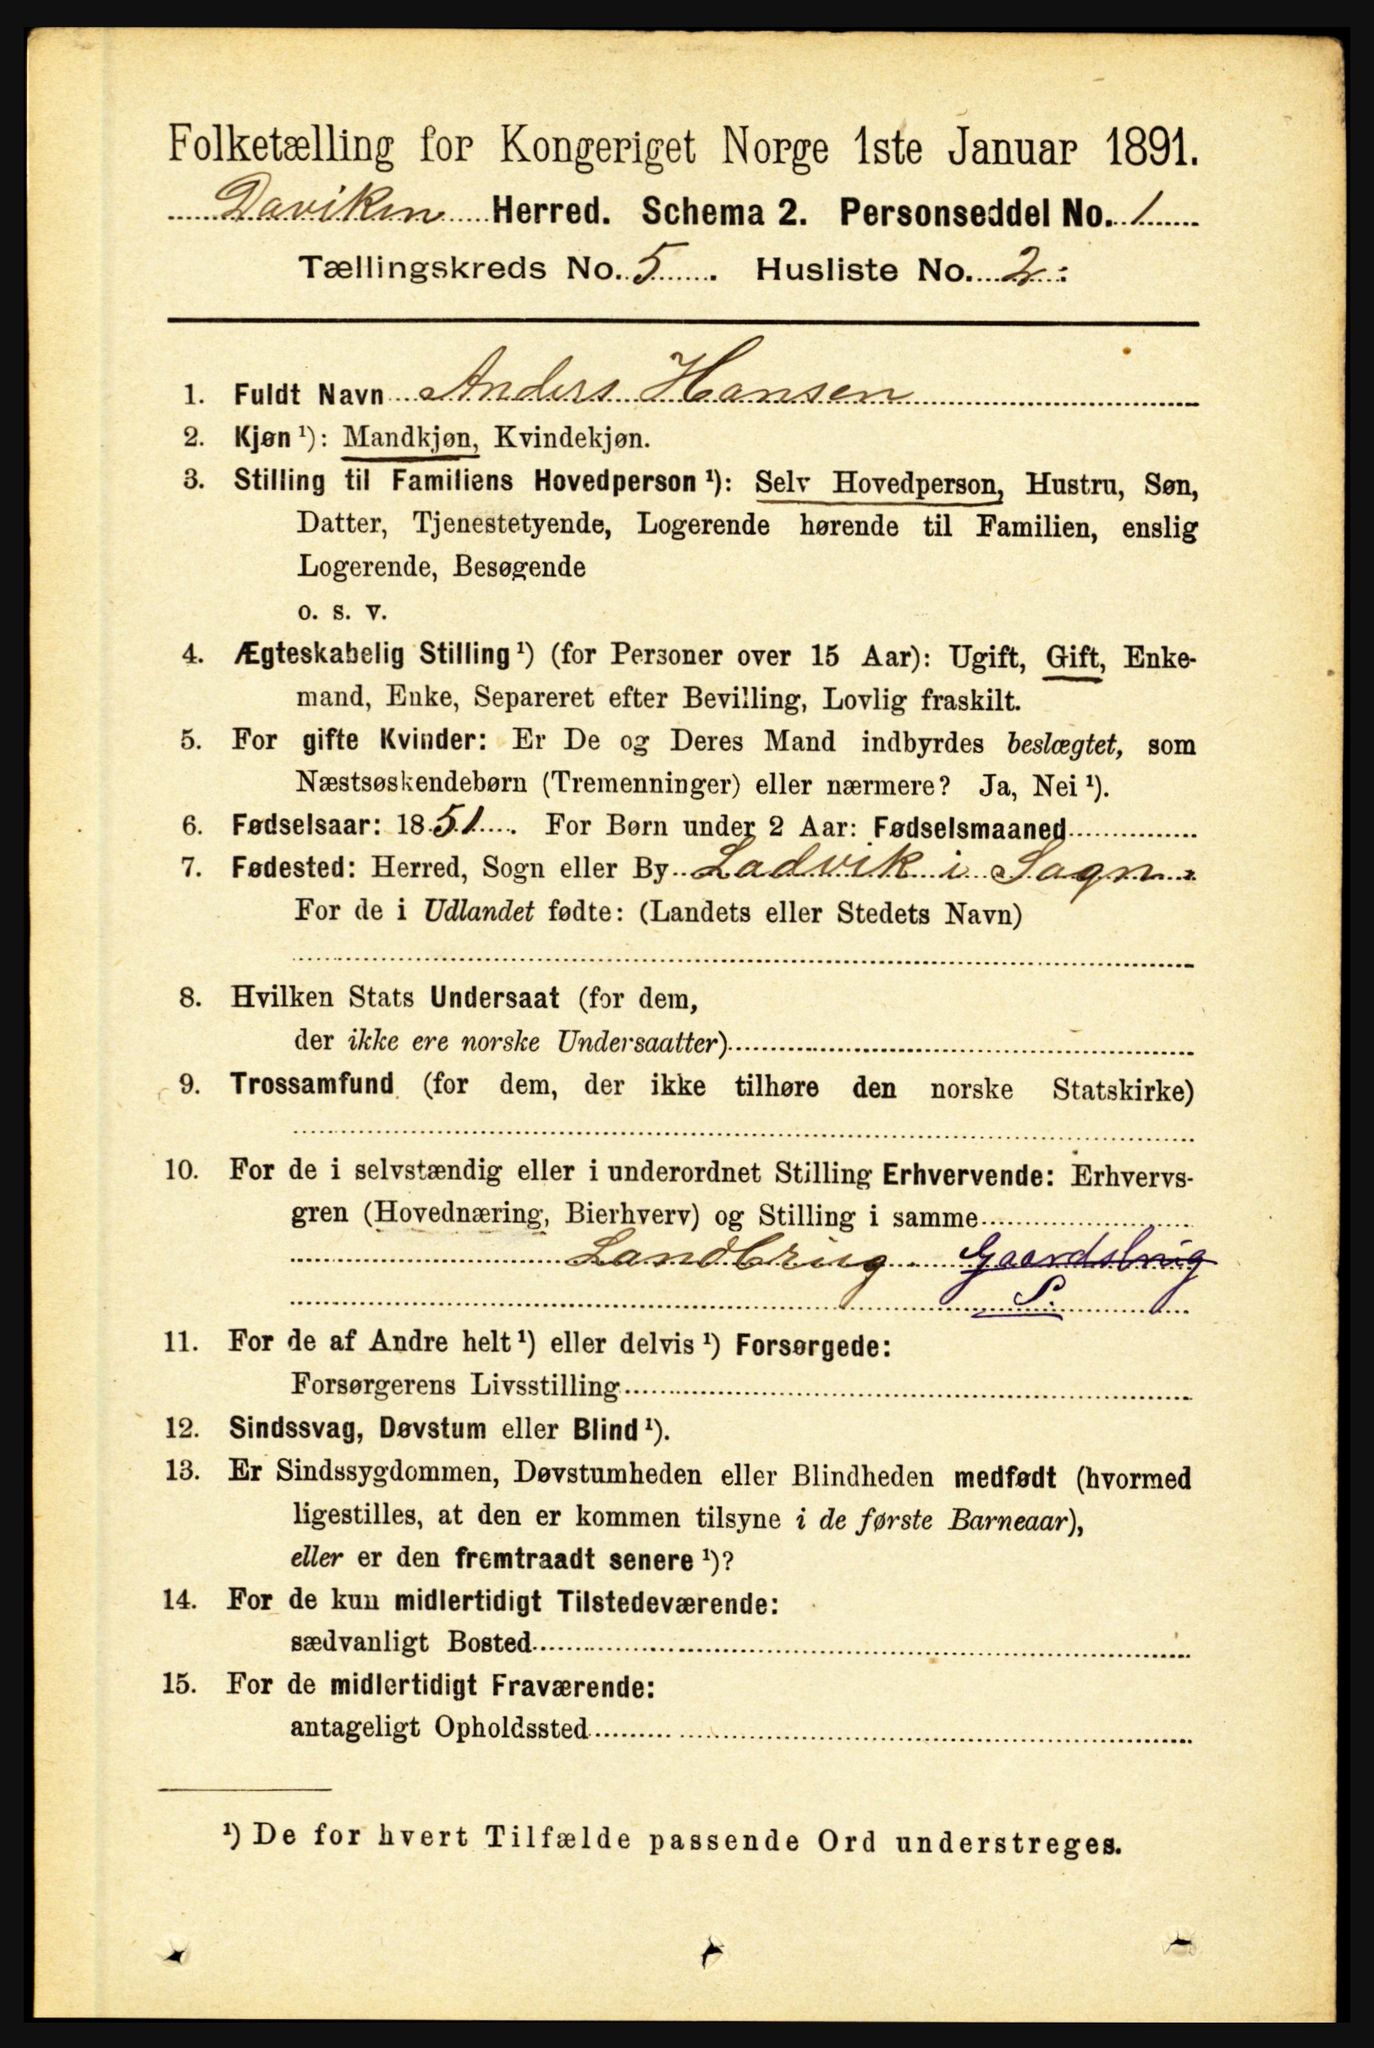 Folketælling for Kongeriget Norge 1ste Januar 1891.
Daviken Herred. Schema 2. Personseddel No. 1
Tællingskreds No. 5. Husliste No. 2.
1. Fuldt Navn Anders Hansen
2. Kjøn ¹): Mandkjøn, Kvindekjøn.
3. Stilling til Familiens Hovedperson ¹): Selv Hovedperson, Hustru, Søn,
Datter, Tjenestetyende, Logerende hørende til Familien, enslig
Logerende, Besøgende
o. s. v.
4. Ægteskabelig Stilling ¹) (for Personer over 15 Aar): Ugift, Gift, Enke-
mand, Enke, Separeret efter Bevilling, Lovlig fraskilt.
5. For gifte Kvinder: Er De og Deres Mand indbyrdes beslægtet, som
Næstsøskendebørn (Tremenninger) eller nærmere? Ja, Nei ¹).
6. Fødselsaar: 1851. For Børn under 2 Aar: Fødselsmaaned
7. Fødested: Herred, Sogn eller By Ladvik i Sogn.
For de i Udlandet fødte: (Landets eller Stedets Navn)
8. Hvilken Stats Undersaat (for dem,
der ikke ere norske Undersaatter)
9. Trossamfund (for dem, der ikke tilhøre den norske Statskirke)
10. For de i selvstændig eller i underordnet Stilling Erhvervende: Erhvervs-
gren (Hovednæring, Bierhverv) og Stilling i samme
Landbrug. Gaardsbrug
S.
11. For de af Andre helt ¹) eller delvis ¹) Forsørgede:
Forsørgerens Livsstilling
12. Sindssvag, Døvstum eller Blind ¹).
13. Er Sindssygdommen, Døvstumheden eller Blindheden medfødt (hvormed
ligestilles, at den er kommen tilsyne i de første Barneaar),
eller er den fremtraadt senere ¹)?
14. For de kun midlertidigt Tilstedeværende:
sædvanligt Bosted
15. For de midlertidigt Fraværende:
antageligt Opholdssted
¹) De for hvert Tilfælde passende Ord understreges.